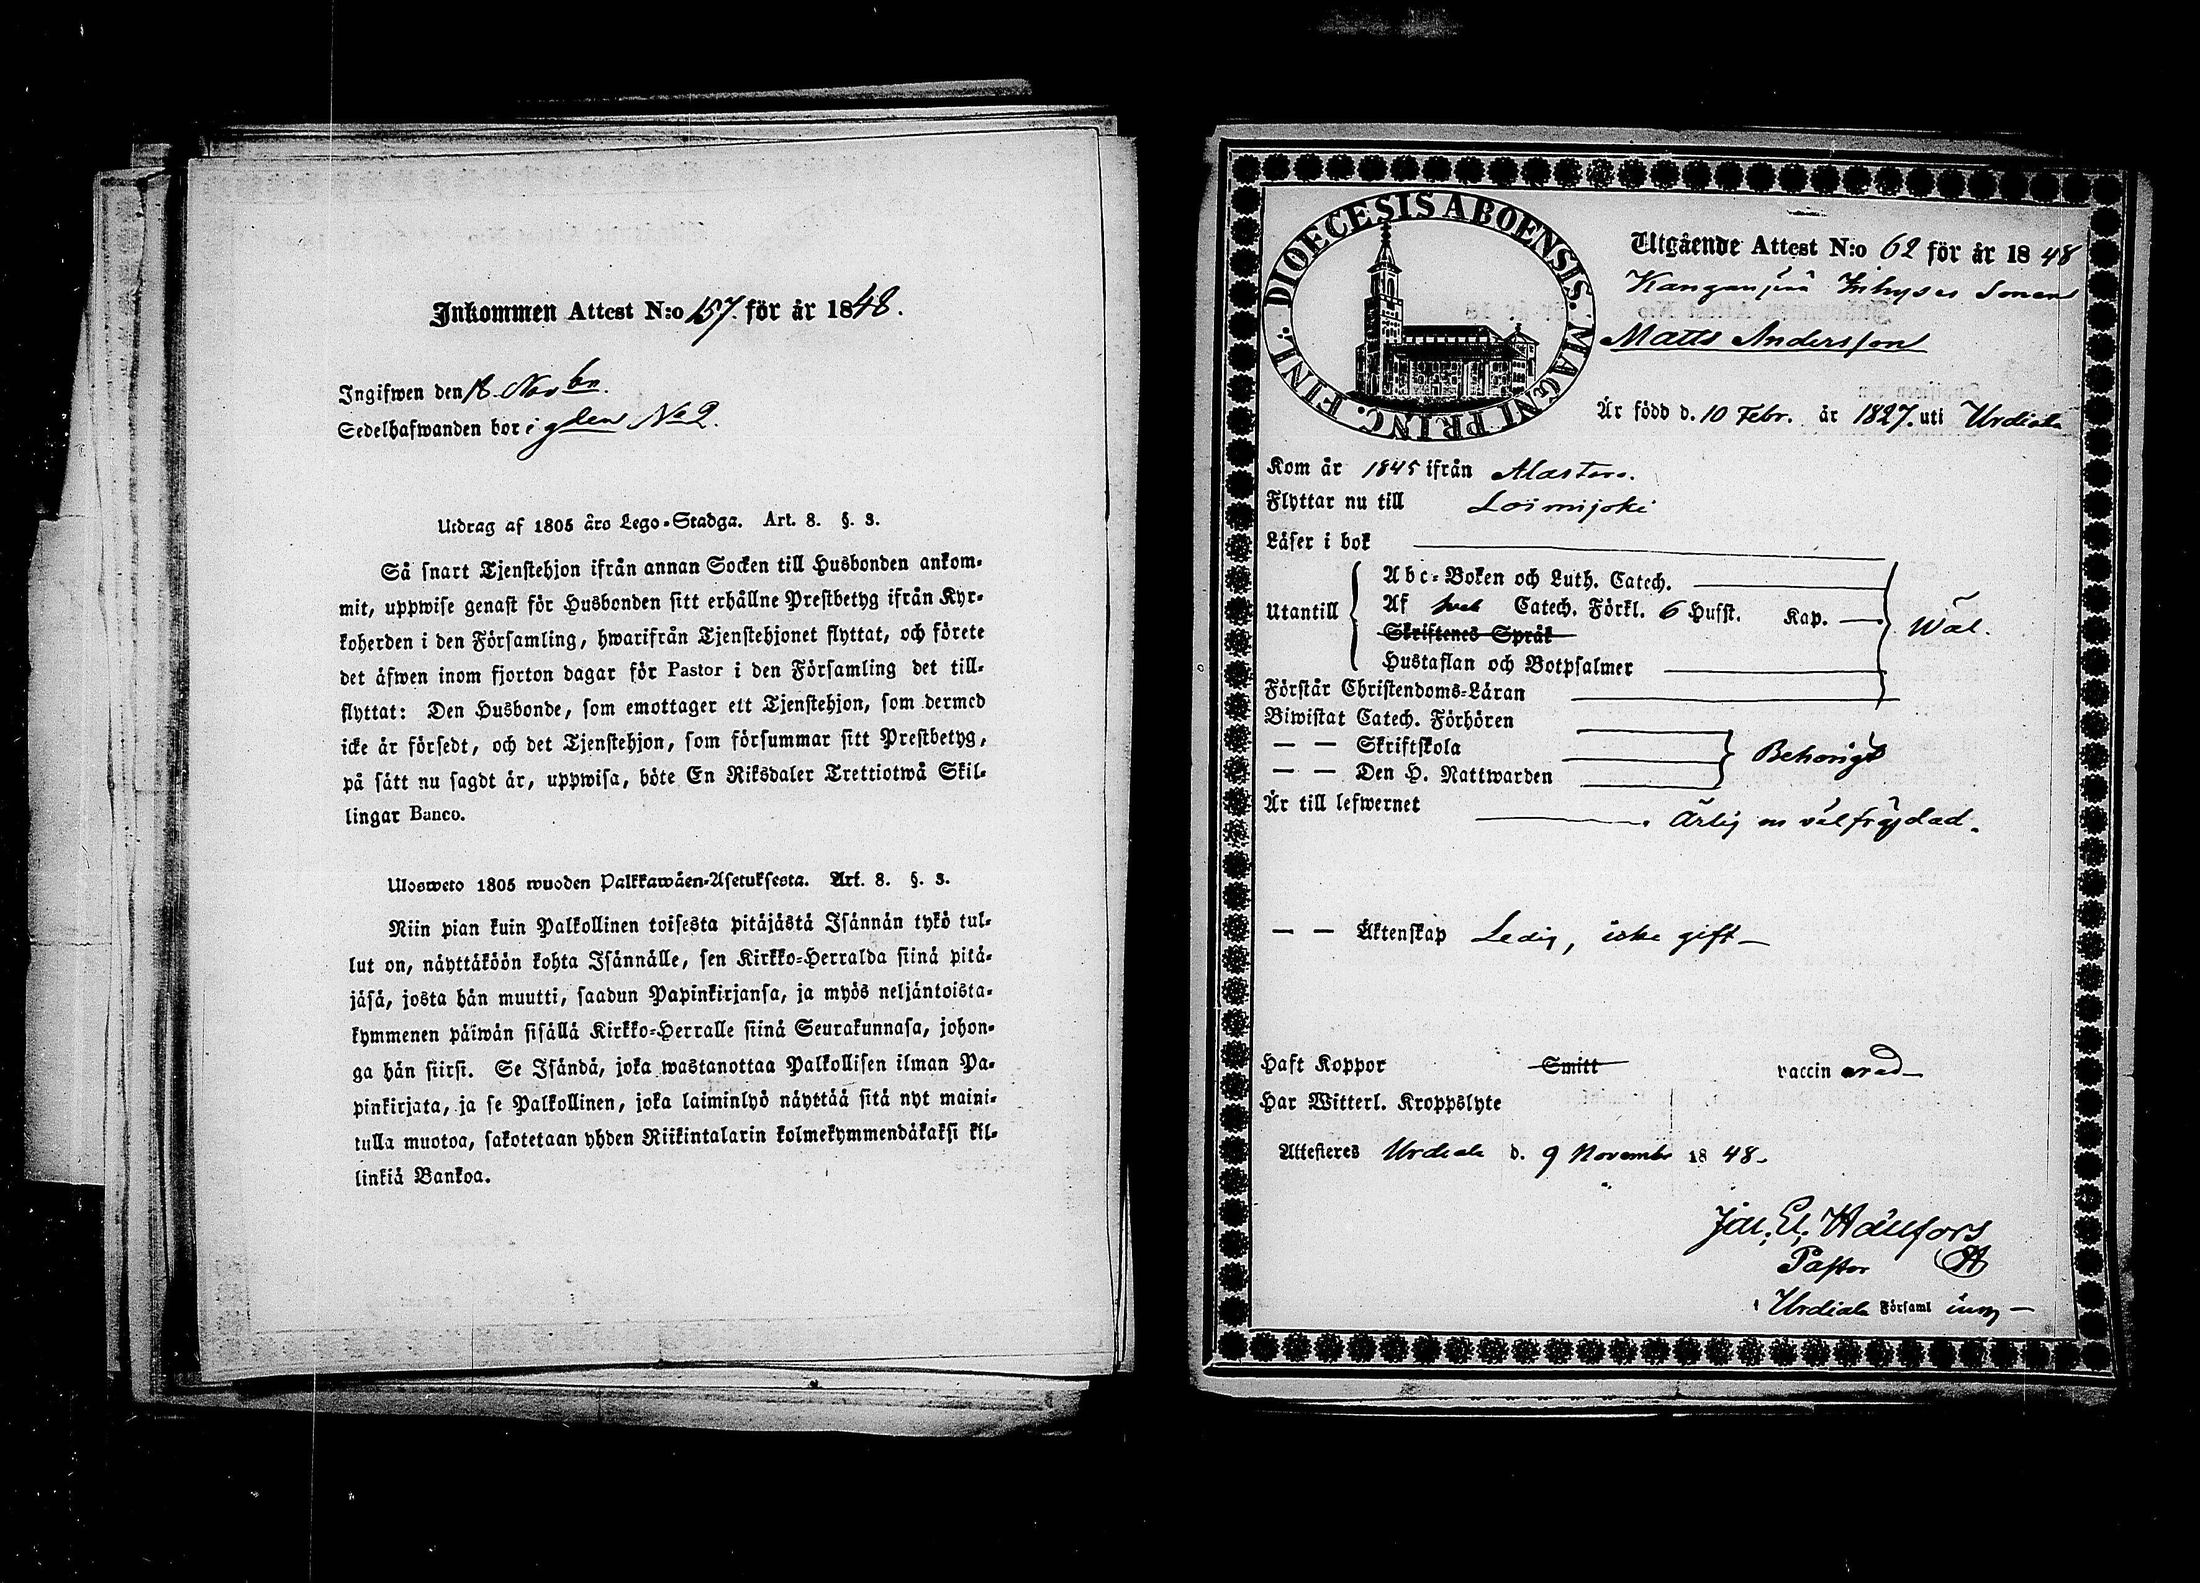 Inkommen Attest N:o 157. för år 1848.
Ingifwen den 18 Novbr.
Sedelhafwanden bor i gden No 2.
Utdrag af 1805 års Lego-Stadga. Art. 8. §. 3.
Så snart Tjenstehjon ifrån annan Socken till Husbonden ankom-
mit, uppwise genast för Husbonden sitt erhållne Prestbetyg ifrån Kyr-
koherden i den Församling, hwarifrån Tjenstehjonet flyttat, och förete
det äfwen inom fjorton dagar för Pastor i den Församling det till-
flyttat: Den Husbonde, som emottager ett Tjenstehjon, som dermed
icke är försedt, och det Tjenstehjon, som försummar sitt Prestbetyg,
på sätt nu sagdt är, uppwisa, böte En Riksdaler Trettiotwå Skil-
lingar Banco.
Ulosweto 1805 wuoden Palkkawäen-Asetuksesta. Art. 8. §. 3.
Niin pian kuin Palkollinen toisesta pitäjästä Isännän tykö tul-
lut on, näyttäköön kohta Isännälle, sen Kirkko-Herralda siinä pitä-
jäsä, josta hän muutti, saadun Papinkirjansa, ja myös neljäntoista-
kymmenen päiwän sisällä Kirkko-Herralle siinä Seurakunnasa, johon-
ga hän siirsi. Se Isändä, joka wastanottaa Palkollisen ilman Pa-
pinkirjata, ja se Palkollinen, joka laiminlyö näyttää sitä nyt maini-
tulla muotoa, sakotetaan yhden Riikintalarin kolmekymmendäkaksi kil-
linkiä Bankoa.
DIOECESIS ABOENSIS. MAGNI PRINC. FINL.
Utgående Attest N:o 62 för år 1848
Matts Andersson
Är född d. 10 Febr. år 1827. uti Urdiala
Kom år 1845 ifrån Alastaro.
Flyttar nu till Loimijoki
Läser i bok
Utantill
Abc-Boken och Luth. Catech.
Af Catech. Förkl. 6 Hufst. Kap. —
Skriftenes Språk
Hustaflan och Botpsalmer
Wäl.
Förstår Christendoms-Läran
Biwistat Catech. Förhören
— — Skriftskola
— — Den H. Nattwarden
Behörigt
Är till lefwernet Ärlig o välfrägdad.
— — Äktenskap Ledig, icke gift —
Haft Koppor Smitt vaccinerad —
Har Witterl. Kroppslyte
Attesteras Urdiala d. 9 November 1848.
Pastor
i Urdiala Församl